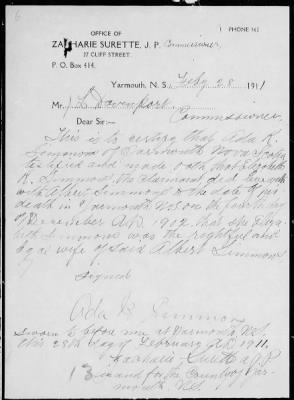 6
OFFICE OF
PHONE 162
ZACHARIE SURETTE, J. P. Commissioner
27 CLIFF STREET.
P. O. Box 414.
Yarmouth, N. S., Feby 28 1911
Mr. J L Davenport.
Commissioner.
Dear Sir:—
This is to certify that Ada K.
Simmons of Yarmouth Nova Scotia
testified and made oath that Elizabeth
R. Simmons the claimant did live
with Albert Simmons to the date of his
death in Yarmouth N.S on the day
of December A.D. 1902. that she Elizabeth
Simmons was the rightful and
legal wife of Said Albert Simmons
Signed
Ada K Simmons
Sworn before me at Yarmouth, N.S.
this 28th day of February A.D. 1911.
Zacharie Surette J.P.
in and for the County of Yar-
mouth N.S.